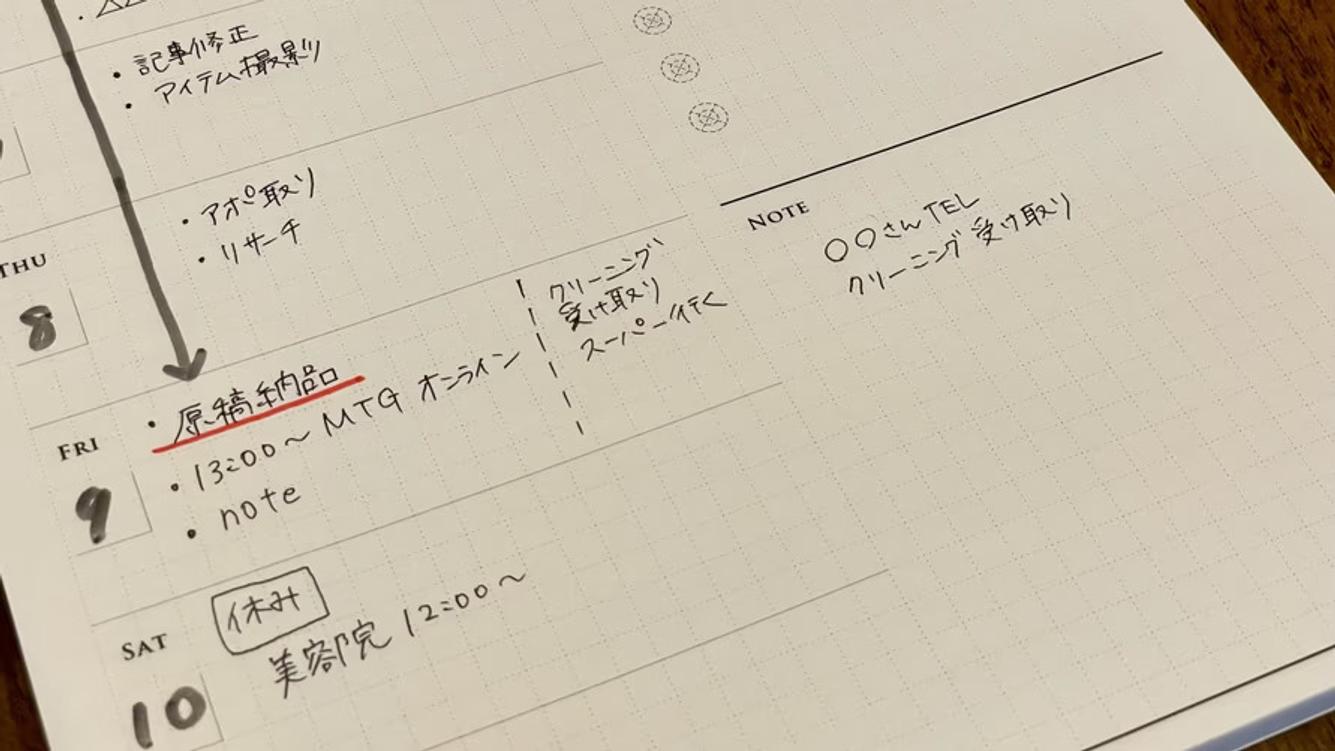 ・記事修正
・アイテム撮影
THU
8
・アポ取り
・リサーチ
FRI
9
・原稿納品
・13:00〜 MTG オンライン
・note
クリーニング
受け取り
スーパー行く
SAT
10
休み
美容院 12:00〜
NOTE
〇〇さん TEL
クリーニング 受け取り